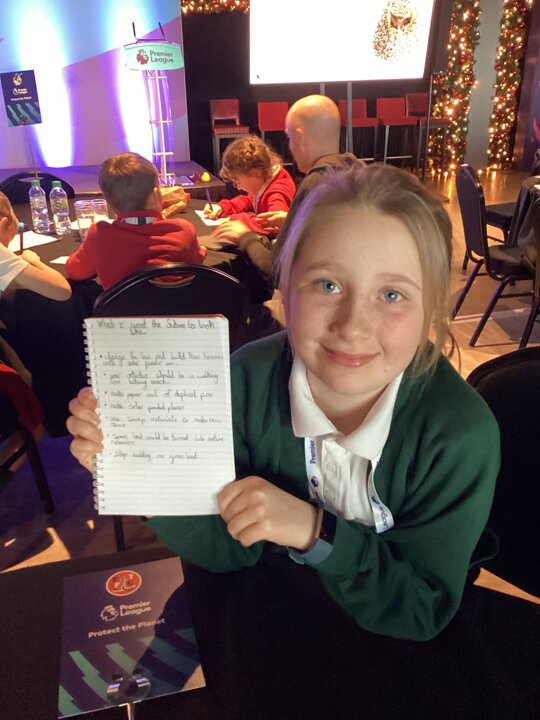 Premier
League
Premier
League
Protect the Planet
What I want the Future to look
like.
• change the law and build New houses
with solar panels on.
• year should be in walking
for making reach.
• make paper out of elephant poo.
• make Solar paneled planes.
• use Scrap materials to make new
• Spare land could be turned into nature
reserves.
• Stop building on grassland.
Premier League
F T
Premier
League
Protect the Planet